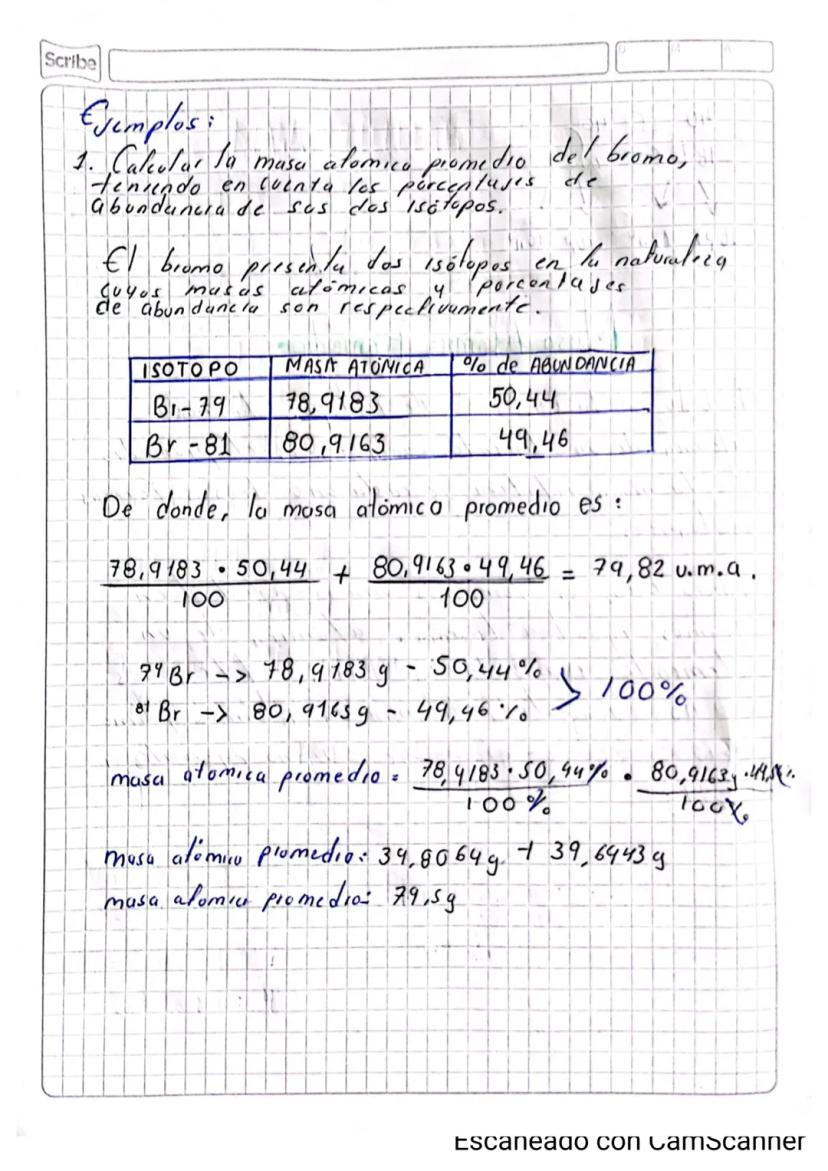 Scribe
Ejemplos:
1. Calcular la masa atomica promedio del bromo,
teniendo en cuenta los porcentajes de
abundancia de sus dos isótopos.
El bromo presenta dos isótopos en la naturaleza
cuyas masas atómicas y porcentajes
de abundancia son respectivamente.
ISOTOPO MASA ATÓNICA % de ABUNDANCIA
Br-79 78,9183 50,44
Br-81 80,9163 49,46
De donde, la masa atómica promedio es:
78,9183 • 50,44 + 80,9163 • 49,46 = 79,82 u.m.a.
100 100
79 Br -> 78,9183 g - 50,44%
> 100%
81 Br -> 80,9163 g - 49,46%
masa atomica promedio = 78,9183 • 50,44% • 80,9163g •
100% 100%
masa atómica promedio: 39,8064g + 39,6943 g
masa atomica promedio: 79,5g
Escaneado con CamScanner